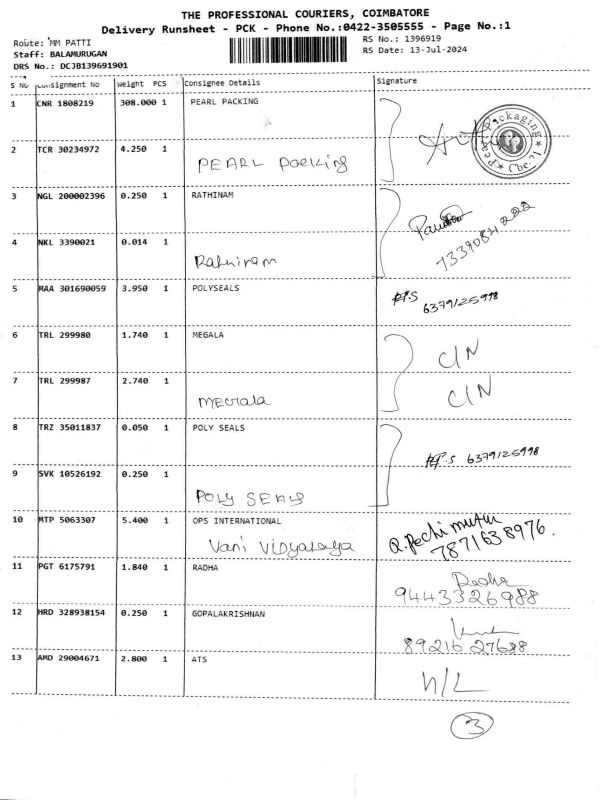 THE PROFESSIONAL COURIERS, COIMBATORE
Delivery Runsheet - PCK - Phone No.:0422-3505555 - Page No.:1
Route: MM PATTI
RS No.: 1396919
Staff: BALAMURUGAN
RS Date: 13-Jul-2024
DRS No.: DCJB139691901
S No Consignment No Weight PCS Consignee Details Signature
1 CNR 1808219 308.000 1 PEARL PACKING
Pearl Packaging Cbe-21
2 TCR 30234972 4.250 1
PEARL Packing
3 NGL 200002396 0.250 1 RATHINAM
7339084222
4 NKL 3390021 0.014 1
Rathinam
5 MAA 301690059 3.950 1 POLYSEALS
P.S 6379125998
6 TRL 299980 1.740 1 MEGALA C/N
7 TRL 299987 2.740 1 C/N
MEGala
8 TRZ 35011837 0.050 1 POLY SEALS
P.S 6379125998
9 SVK 10526192 0.250 1
POLY SEALS
10 MTP 5063307 5.400 1 OPS INTERNATIONAL
Vani Vidyalaya
Q.Pechimuthu
7871638976.
11 PGT 6175791 1.840 1 RADHA Radha
9443326988
12 HRD 328938154 0.250 1 GOPALAKRISHNAN
8921627688
13 AMD 29004671 2.800 1 ATS
N/L
3